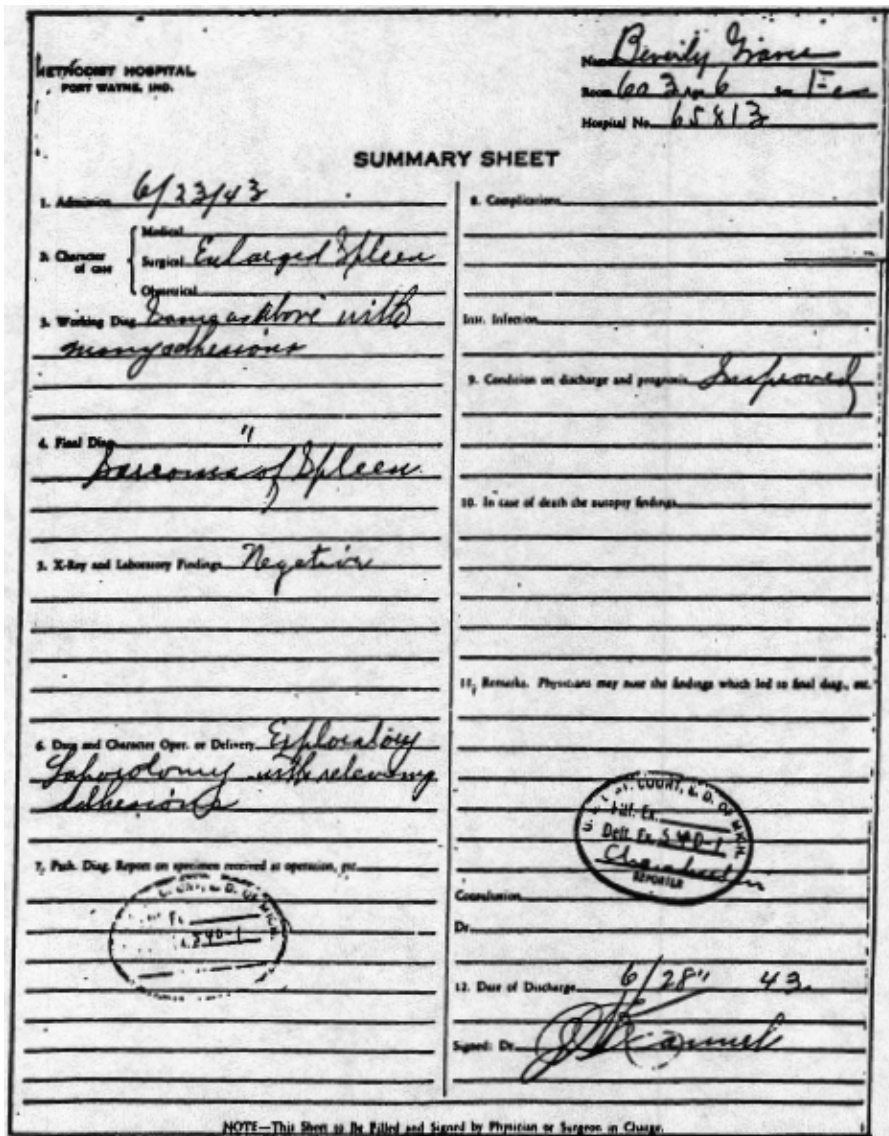 METHODIST HOSPITAL
FORT WAYNE, IND.
Name Beverly
Room 603 Age 6
Hospital No. 65813
SUMMARY SHEET
1. Admission 6/23/43
2. Character of case
Medical
Surgical Enlarged Spleen
Obstetrical
3. Working Diag. Same as Above with
many adhesions
4. Final Diag. "
Sarcoma of Spleen
5. X-Ray and Laboratory Findings Negative
6. Date and Character Oper. or Delivery Exploratory
Laporotomy with releving
Adhesions
7. Path. Diag. Report on specimen received at operation, etc.
COURT, E. D. OF MICH.
Ex.
540-1
8. Complications
Inst. Infection
9. Condition on discharge and prognosis Improved
10. In case of death the autopsy findings
11. Remarks. Physicians may note the findings which led to final diag., etc.
COURT, E. D. OF MICH.
Plf. Ex.
Deft. Ex. 540-1
REPORTER
Consultation
Dr.
12. Date of Discharge 6/28" 43
Signed: Dr.
NOTE—This Sheet to Be Filled and Signed by Physician or Surgeon in Charge.